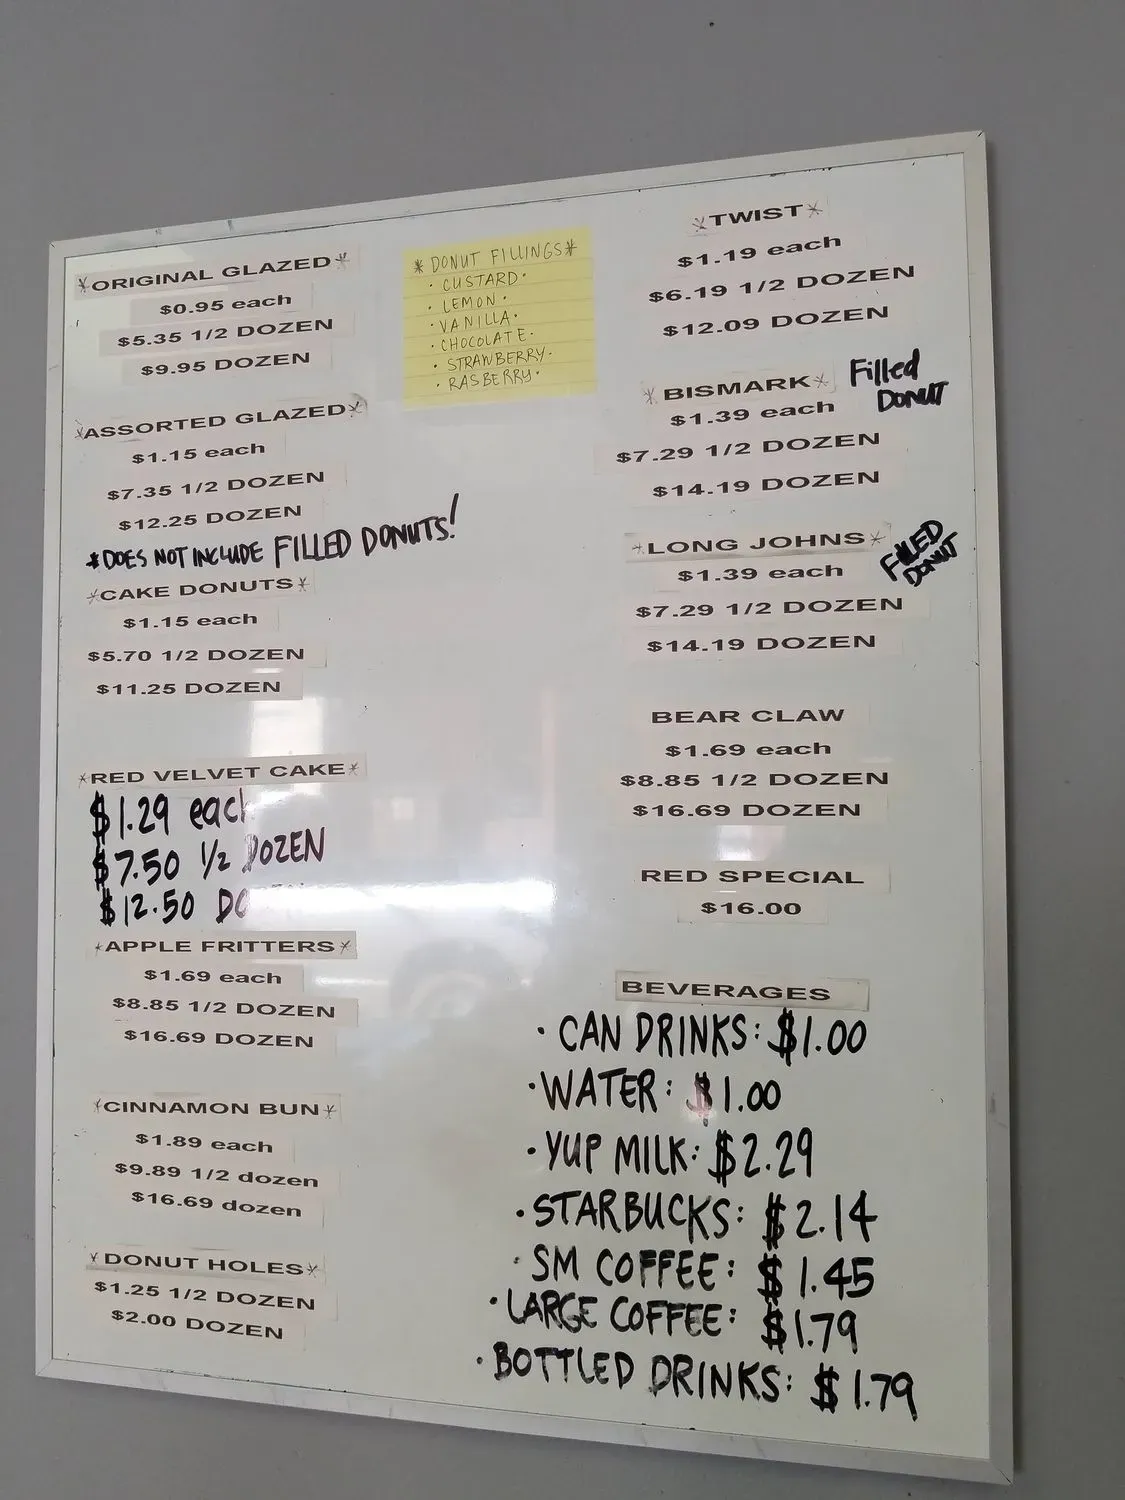 *ORIGINAL GLAZED*
$0.95 each
$5.35 1/2 DOZEN
$9.95 DOZEN
*ASSORTED GLAZED*
$1.15 each
$7.35 1/2 DOZEN
$12.25 DOZEN
*DOES NOT INCLUDE FILLED DONUTS!
*CAKE DONUTS*
$1.15 each
$5.70 1/2 DOZEN
$11.25 DOZEN
*RED VELVET CAKE*
$1.29 each
$7.50 1/2 DOZEN
$12.50
*APPLE FRITTERS*
$1.69 each
$8.85 1/2 DOZEN
$16.69 DOZEN
*CINNAMON BUN*
$1.89 each
$9.89 1/2 dozen
$16.69 dozen
*DONUT HOLES*
$1.25 1/2 DOZEN
$2.00 DOZEN
* DONUT FILLINGS*
· CUSTARD·
· LEMON·
· VANILLA·
· CHOCOLATE·
· STRAWBERRY·
· RASBERRY·
*TWIST*
$1.19 each
$6.19 1/2 DOZEN
$12.09 DOZEN
*BISMARK* Filled
DONUT
$1.39 each
$7.29 1/2 DOZEN
$14.19 DOZEN
*LONG JOHNS* FILLED
DONUT
$1.39 each
$7.29 1/2 DOZEN
$14.19 DOZEN
BEAR CLAW
$1.69 each
$8.85 1/2 DOZEN
$16.69 DOZEN
RED SPECIAL
$16.00
BEVERAGES
· CAN DRINKS: $1.00
· WATER: $1.00
· YUP MILK: $2.29
· STARBUCKS: $2.14
· SM COFFEE: $1.45
· LARGE COFFEE: $1.79
· BOTTLED DRINKS: $1.79